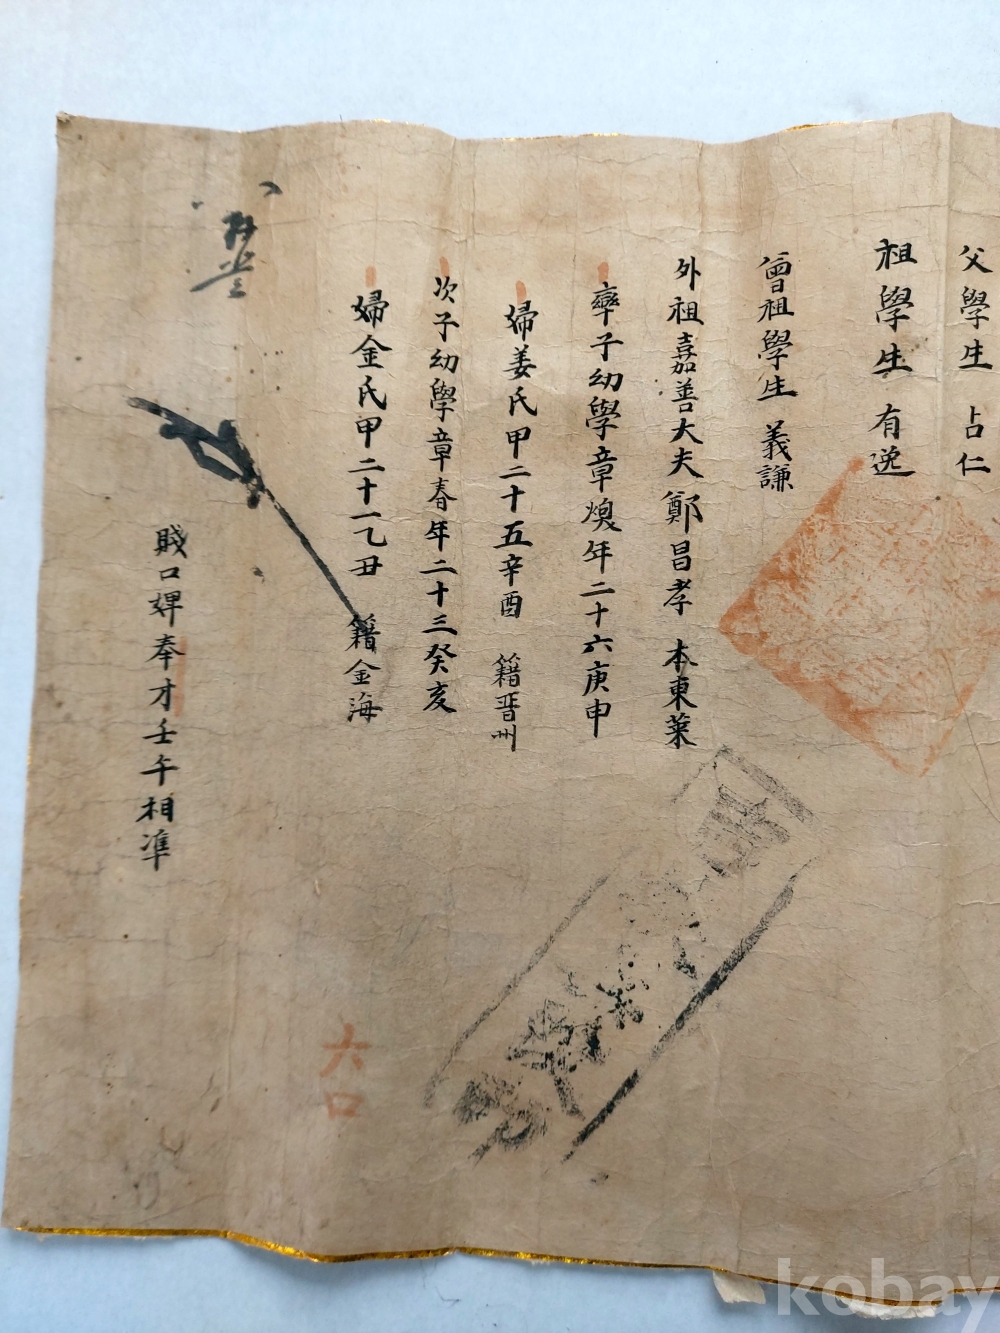 父學生 占仁
祖學生 有逸
曾祖學生 義謙
外祖嘉善大夫鄭昌孝 本東萊
率子幼學章煥年二十六庚申
婦姜氏甲二十五辛酉 籍晋州
次子幼學章春年二十三癸亥
婦金氏甲二十一乙丑 籍金海
賎口婢奉才壬午相準
六口
kobay